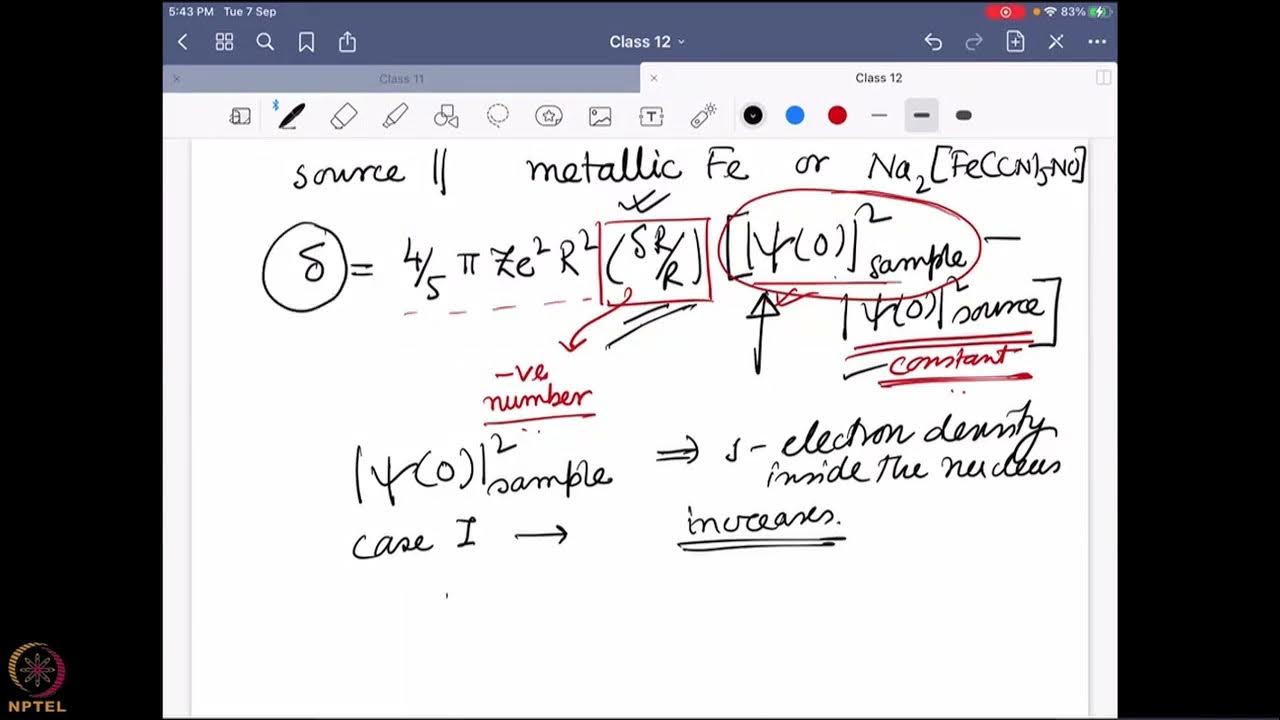 5:43 PM Tue 7 Sep
83%
Class 12
Class 11
Class 12
source || metallic Fe or Na₂[Fe(CN)5NO]
δ = 4/5 π Ze² R² (δR/R) [|ψ(0)|² sample —
|ψ(0)|² source]
constant
-ve
number
|ψ(0)|² sample ⇒ s-electron density
inside the nucleus
case I → increases.
NPTEL